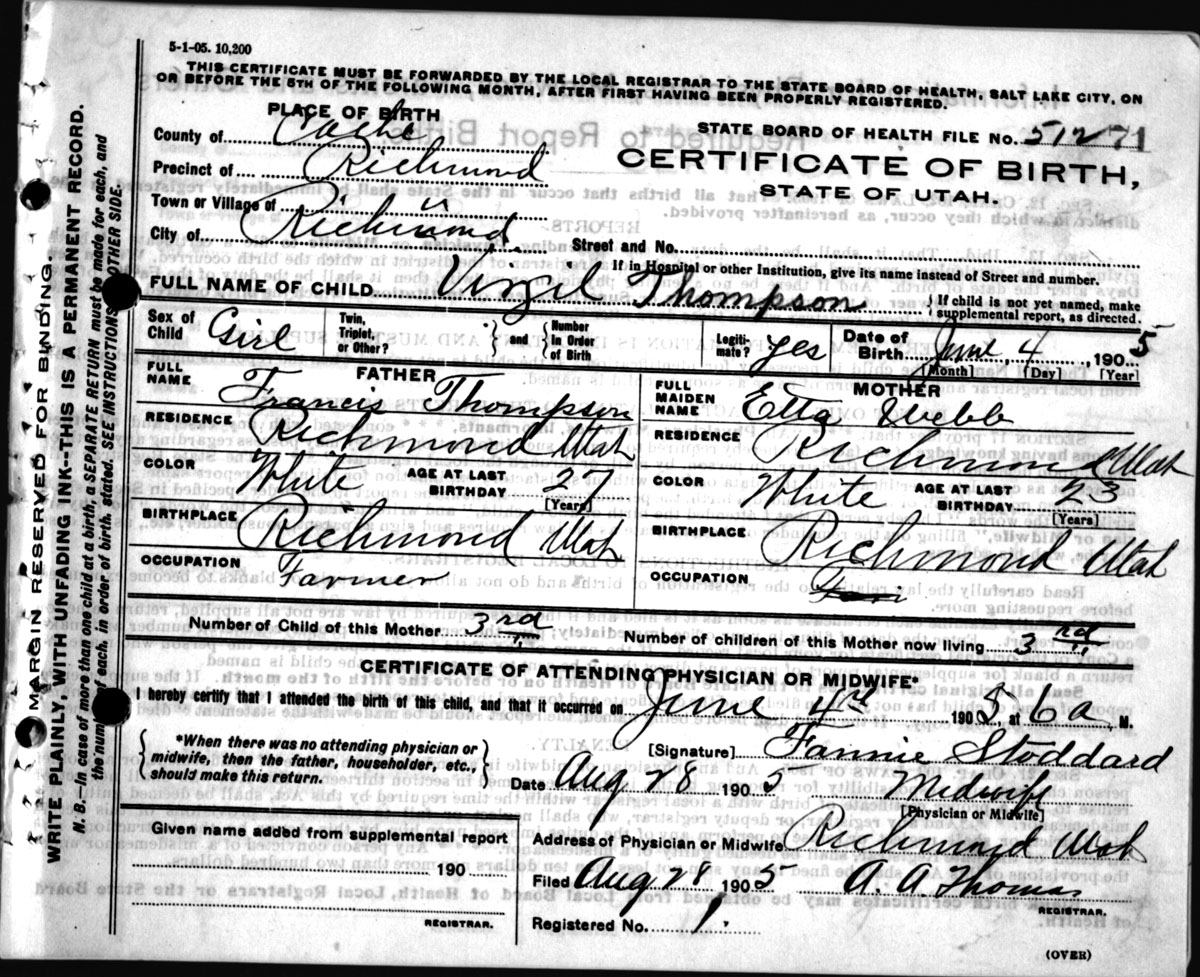 5-1-05. 10,200
THIS CERTIFICATE MUST BE FORWARDED BY THE LOCAL REGISTRAR TO THE STATE BOARD OF HEALTH, SALT LAKE CITY, ON
OR BEFORE THE 5TH OF THE FOLLOWING MONTH, AFTER FIRST HAVING BEEN PROPERLY REGISTERED.
PLACE OF BIRTH
County of Cache
Precinct of Richmond
Town or Village of
City of Richmond
STATE BOARD OF HEALTH FILE No. 51271
CERTIFICATE OF BIRTH,
STATE OF UTAH.
Street and No.
If in Hospital or other Institution, give its name instead of Street and number.
FULL NAME OF CHILD Virgil Thompson } If child is not yet named, make supplemental report, as directed.
Sex of Child Girl
Twin, Triplet, or Other? } and { Number in Order of Birth
Legitimate? yes
Date of Birth June 4, 1905
[Month] [Day] [Year]
FATHER
FULL NAME Francis Thompson
RESIDENCE Richmond Utah
COLOR White AGE AT LAST BIRTHDAY 27
[Years]
BIRTHPLACE Richmond Utah
OCCUPATION Farmer
MOTHER
FULL MAIDEN NAME Etta Webb
RESIDENCE Richmond Utah
COLOR White AGE AT LAST BIRTHDAY 23
[Years]
BIRTHPLACE Richmond Utah
OCCUPATION
Number of Child of this Mother 3rd Number of children of this Mother now living 3rd
CERTIFICATE OF ATTENDING PHYSICIAN OR MIDWIFE*
I hereby certify that I attended the birth of this child, and that it occurred on June 4th 1905, at 6a M.
{ *When there was no attending physician or midwife, then the father, householder, etc., should make this return. }
[Signature] Fannie Stoddard
Date Aug 28 1905 Midwife
[Physician or Midwife]
Given name added from supplemental report
190
REGISTRAR.
Address of Physician or Midwife Richmond Utah
Filed Aug 28, 1905 A. A Thomas
REGISTRAR.
Registered No. 1
(OVER)
MARGIN RESERVED FOR BINDING.
WRITE PLAINLY, WITH UNFADING INK--THIS IS A PERMANENT RECORD.
N. B.—In case of more than one child at a birth, a SEPARATE RETURN must be made for each, and
the number of each, in order of birth, stated. SEE INSTRUCTIONS OTHER SIDE.